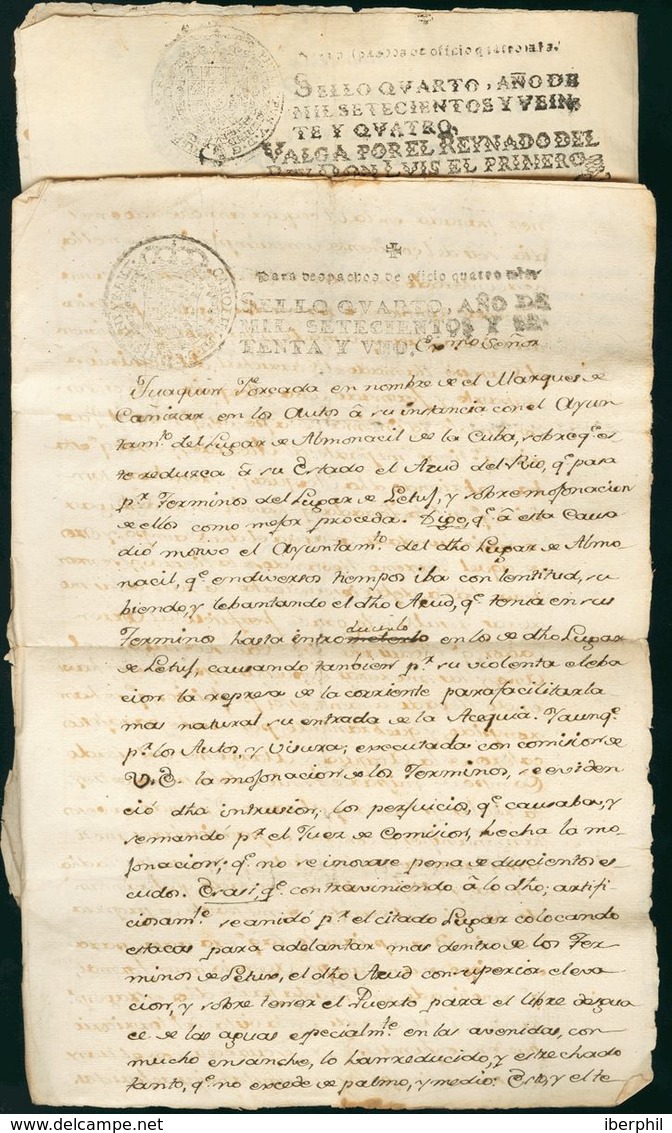 Para despachos de oficio quatro mrs.
SELLO QVARTO, AÑO DE
MIL SETECIENTOS Y VEIN
TE Y QVATRO.
VALGA POR EL REYNADO DEL
REY DON LUIS EL PRIMERO
Para despachos de oficio quatro mrs
SELLO QVARTO, AÑO DE
MIL SETECIENTOS Y SE-
TENTA Y VNO.
Exmo Señor
Juaquin Forcada en nombre de el Marques de
Cañizar en los Autos â su instancia con el Ayun
tamto. del Lugar de Almonacil de la Cuba, sobre q.e es
te reduzca â su Estado el Azud del Rio, q.e pasa
p.r Terminos del Lugar de Letuß, y sobre mojonacion
de ellos como mejor proceda. Digo, q.e â esta Causa
dió motivo el Ayuntam.to del dho Lugar de Almo-
nacil, q.e en diversos tiempos iba con lentitud, su
biendo, y lebantando el dho Azud, q.e tenia en sus
ducirlo
Terminos hasta intro en los de dho Lugar
de Letuß, causando tambien p.r su violenta eleba
cion la represa de la corriente para facilitar la
mas natural su entrada de la Acequia. Y aunq.e
p.r los Autos, y Visura, executada con comision de
V.E. la mojonacion de los Terminos, se eviden
ció dha intrusion, los perjuicios, q.e causaba, y
se mandó p.r el Juez de Comision, hecha la mo-
jonacion; q.e no se inovase pena de duscientos es
cudos. Er asi q.e contraviniendo â lo dho; artifi-
ciosam.te se añidó p.r el citado Lugar colocando
estacas para adelantar mas dentro de los Ter-
minos de Letux, el dho Azud con superior eleva
cion, y sobre tener el Puerto para el libre desgua
ce de las aguas especialm.te en las avenidas, con
mucho ensanche, lo han reducido, y estrechado
tanto, q.e no excede de palmo, y medio: Esto, y el te-
iberphil